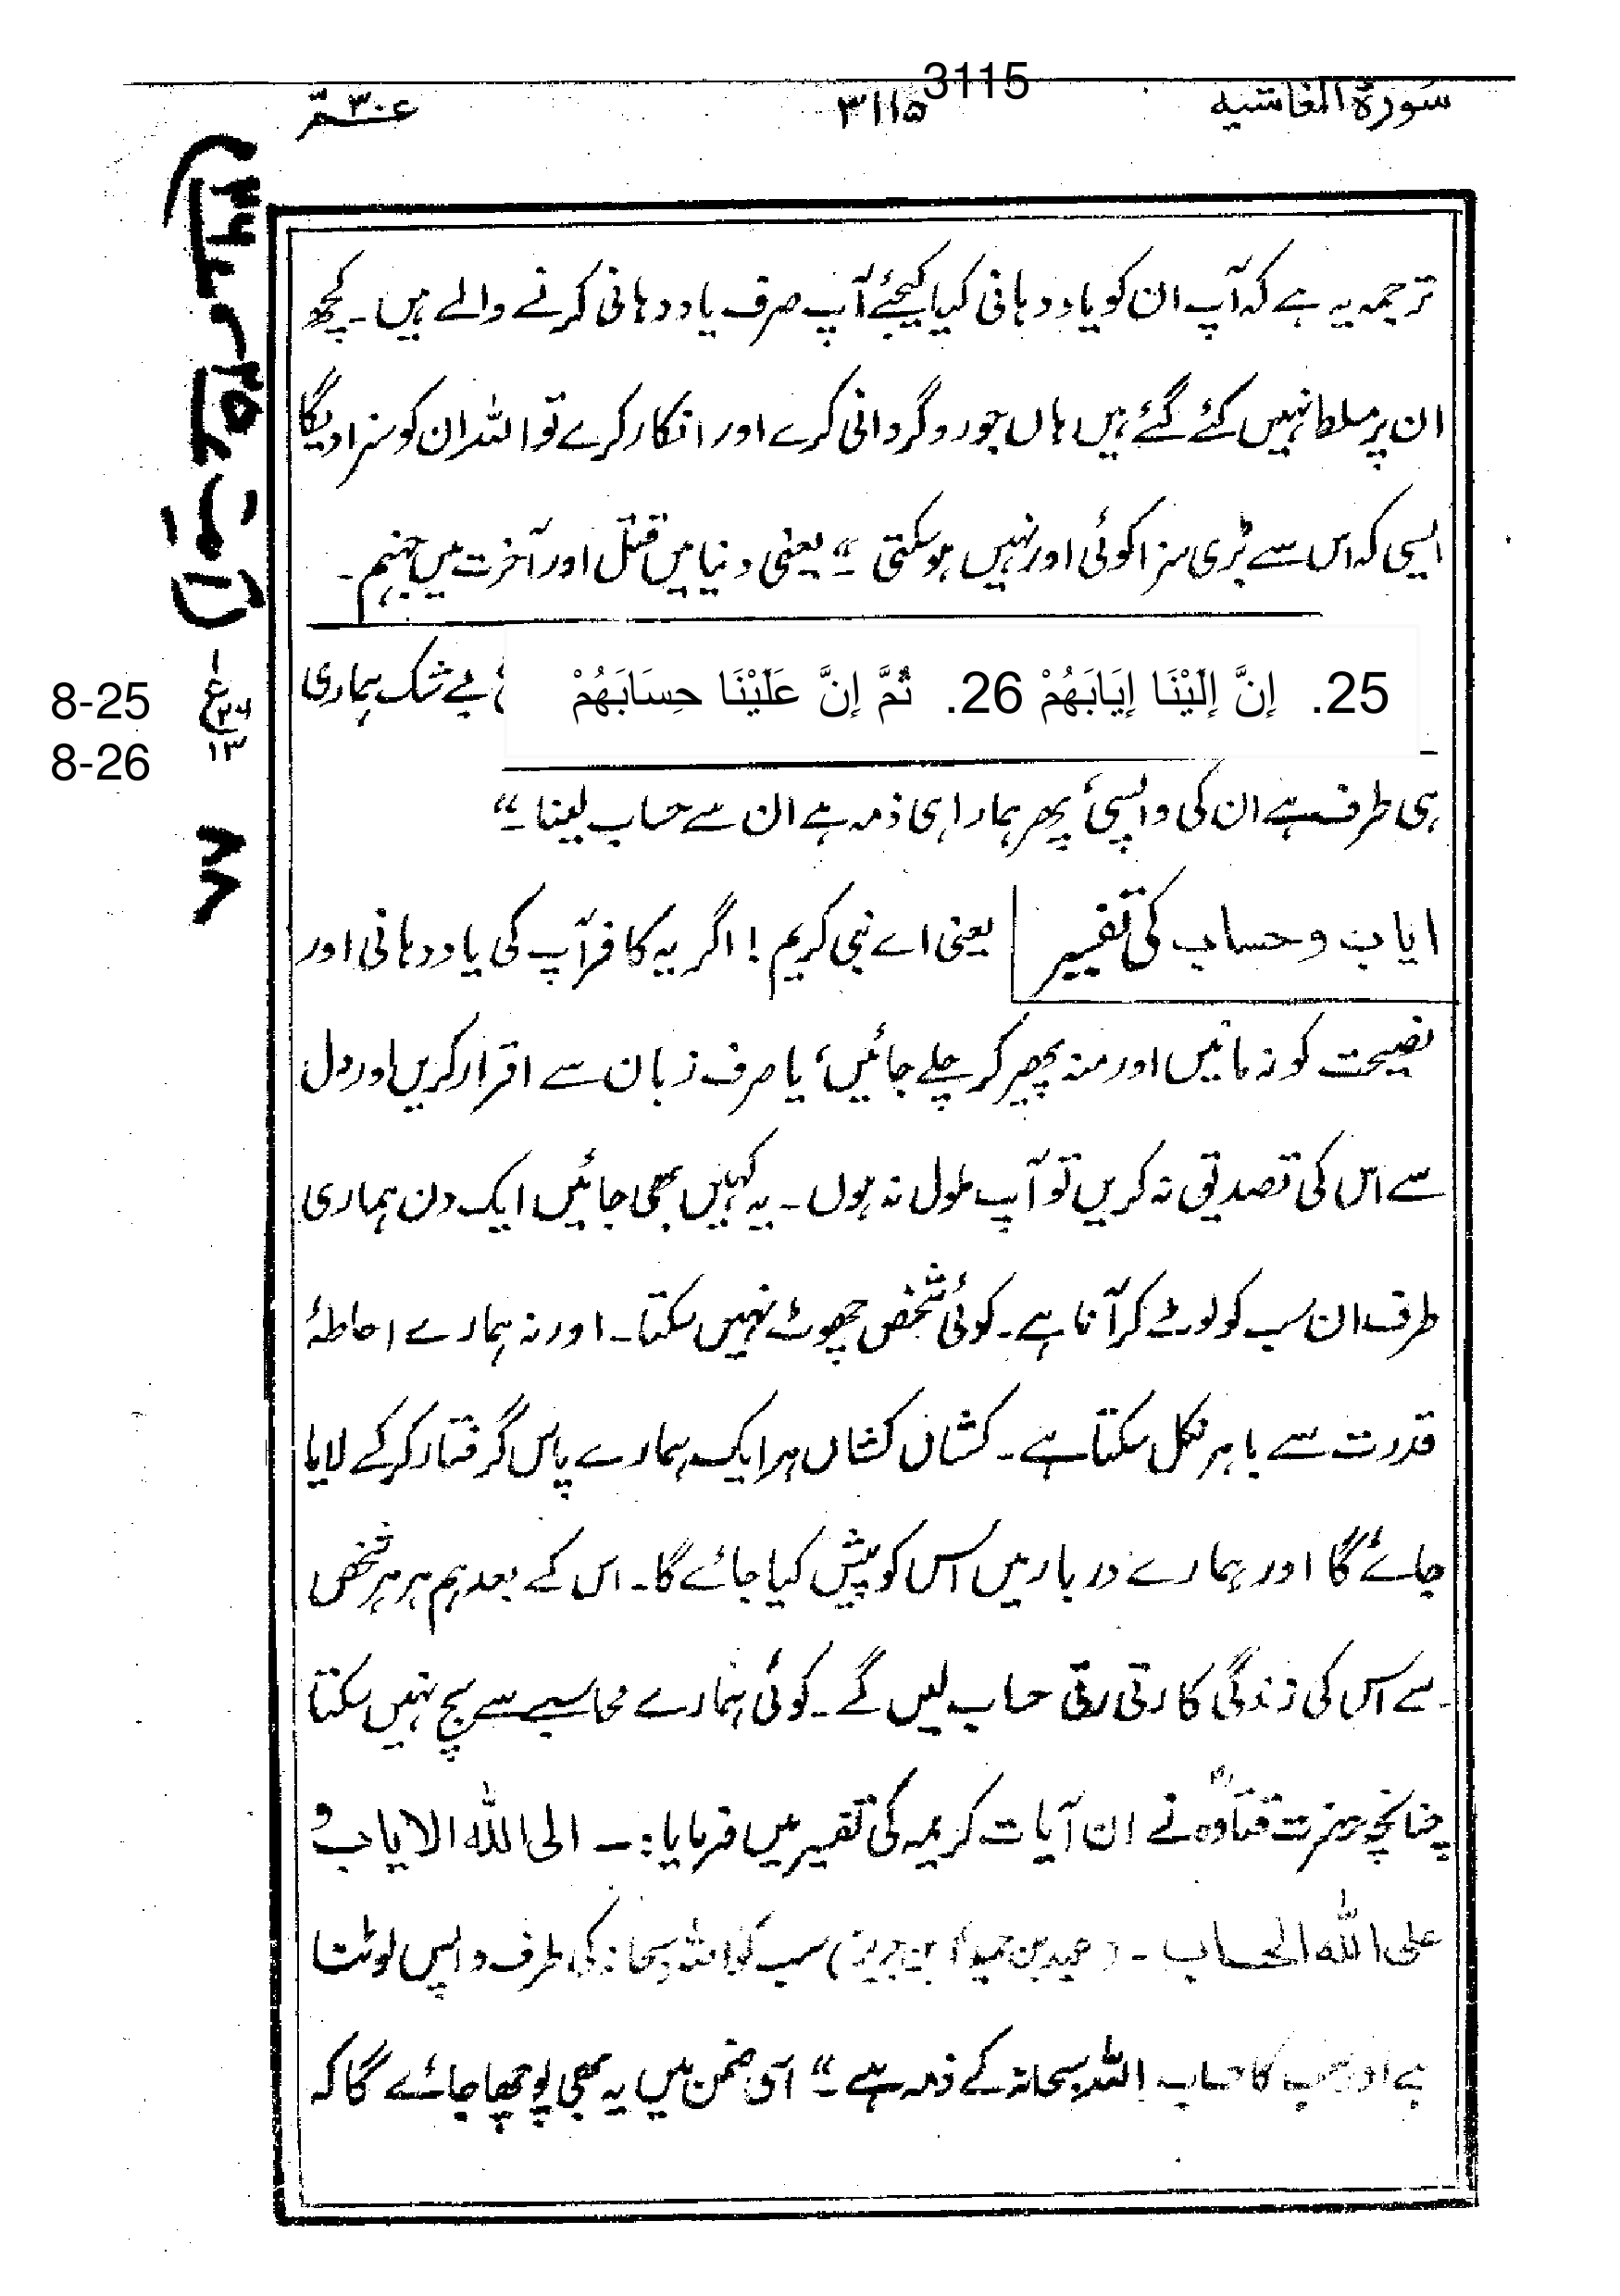 3115
سورۃ الغاشیہ
۳۱۱۵
عمّ ۳۰
ترجمہ یہ ہے کہ آپ ان کو یاد دہانی کیا کیجئے آپ صرف یاد دہانی کرنے والے ہیں۔ کچھ
ان پر مسلط نہیں کئے گئے ہیں ہاں جو روگردانی کرے اور انکار کرے تو اللہ ان کو سزا دیگا
ایسی کہ اس سے بڑی سزا کوئی اور نہیں ہو سکتی ۔“ یعنی دنیا میں قتل اور آخرت میں جہنم ۔
25. إِنَّ إِلَيْنَا إِيَابَهُمْ 26. ثُمَّ إِنَّ عَلَيْنَا حِسَابَهُمْ بے شک ہماری
8-25
8-26
ع
۱۳
ہی طرف ہے ان کی واپسی، پھر ہمارا ہی ذمہ ہے ان سے حساب لینا۔“
ایاب و حساب کی تفسیر یعنی اے نبی کریم ! اگر یہ کافر آپ کی یاد دہانی اور
نصیحت کو نہ مانیں اور منہ پھیر کر چلے جائیں، یا صرف زبان سے اقرار کریں اور دل
سے اس کی تصدیق نہ کریں تو آپ ملول نہ ہوں ۔ یہ کہیں بھی جائیں ایک دن ہماری
طرف ان سب کو لوٹ کر آنا ہے ۔ کوئی شخص چھوٹ نہیں سکتا ۔ اور نہ ہمارے احاطۂ
قدرت سے باہر نکل سکتا ہے ۔ کشاں کشاں ہر ایک ہمارے پاس گرفتار کر کے لایا
جائے گا اور ہمارے دربار میں اس کو پیش کیا جائے گا ۔ اس کے بعد ہم ہر ہر شخص
سے اس کی زندگی کا رتی رتی حساب لیں گے ۔ کوئی ہمارے محاسبے سے بچ نہیں سکتا
چنانچہ حضرت قتادہؓ نے ان آیات کریمہ کی تفسیر میں فرمایا :۔ الی اللہ الایاب و
علی اللہ الحساب ۔ ( بن حمید، ابن جریر) سب کو اللہ سبحانہ کی طرف واپس لوٹنا
ہے اور سب کا حساب اللہ سبحانہ کے ذمہ ہے ۔“ اسی ضمن میں یہ بھی پوچھا جائے گا کہ